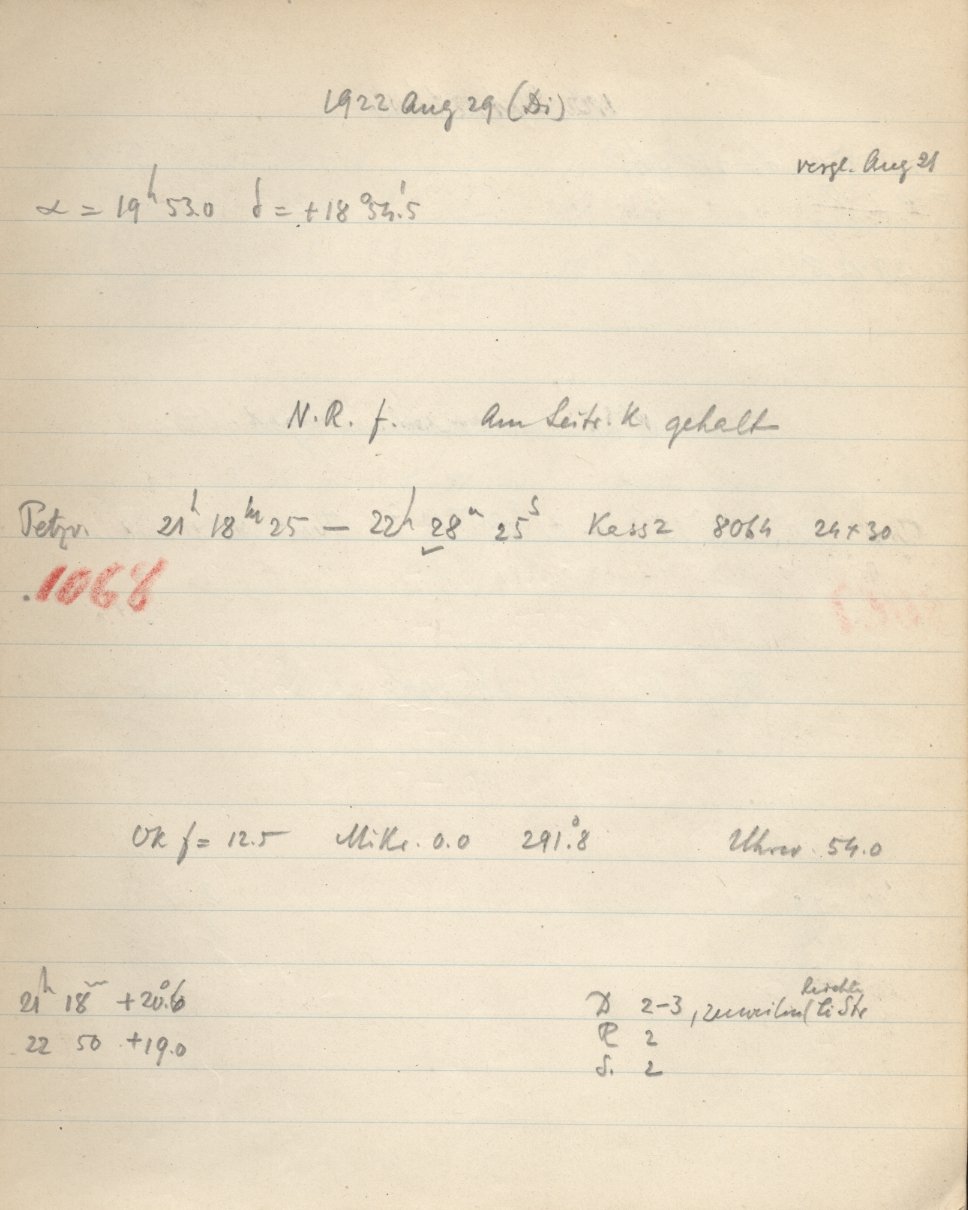 1922 Aug 29 (Di)
vergl. Aug 21
α = 19h 53.0 δ = +18°54'.5
N.R. f. Am Leitr. K gehalt
Petzv. 21h 18m 25 — 22h 28m 25s Kass 2 8064 24×30
1068
Ok f = 12.5 Mikr. 0.0 291°.8 Uhrw. 54.0
21h 18m +20°.6
22 50 +19.0
D 2-3, zuweilen leichte Ci Str
R 2
S. 2